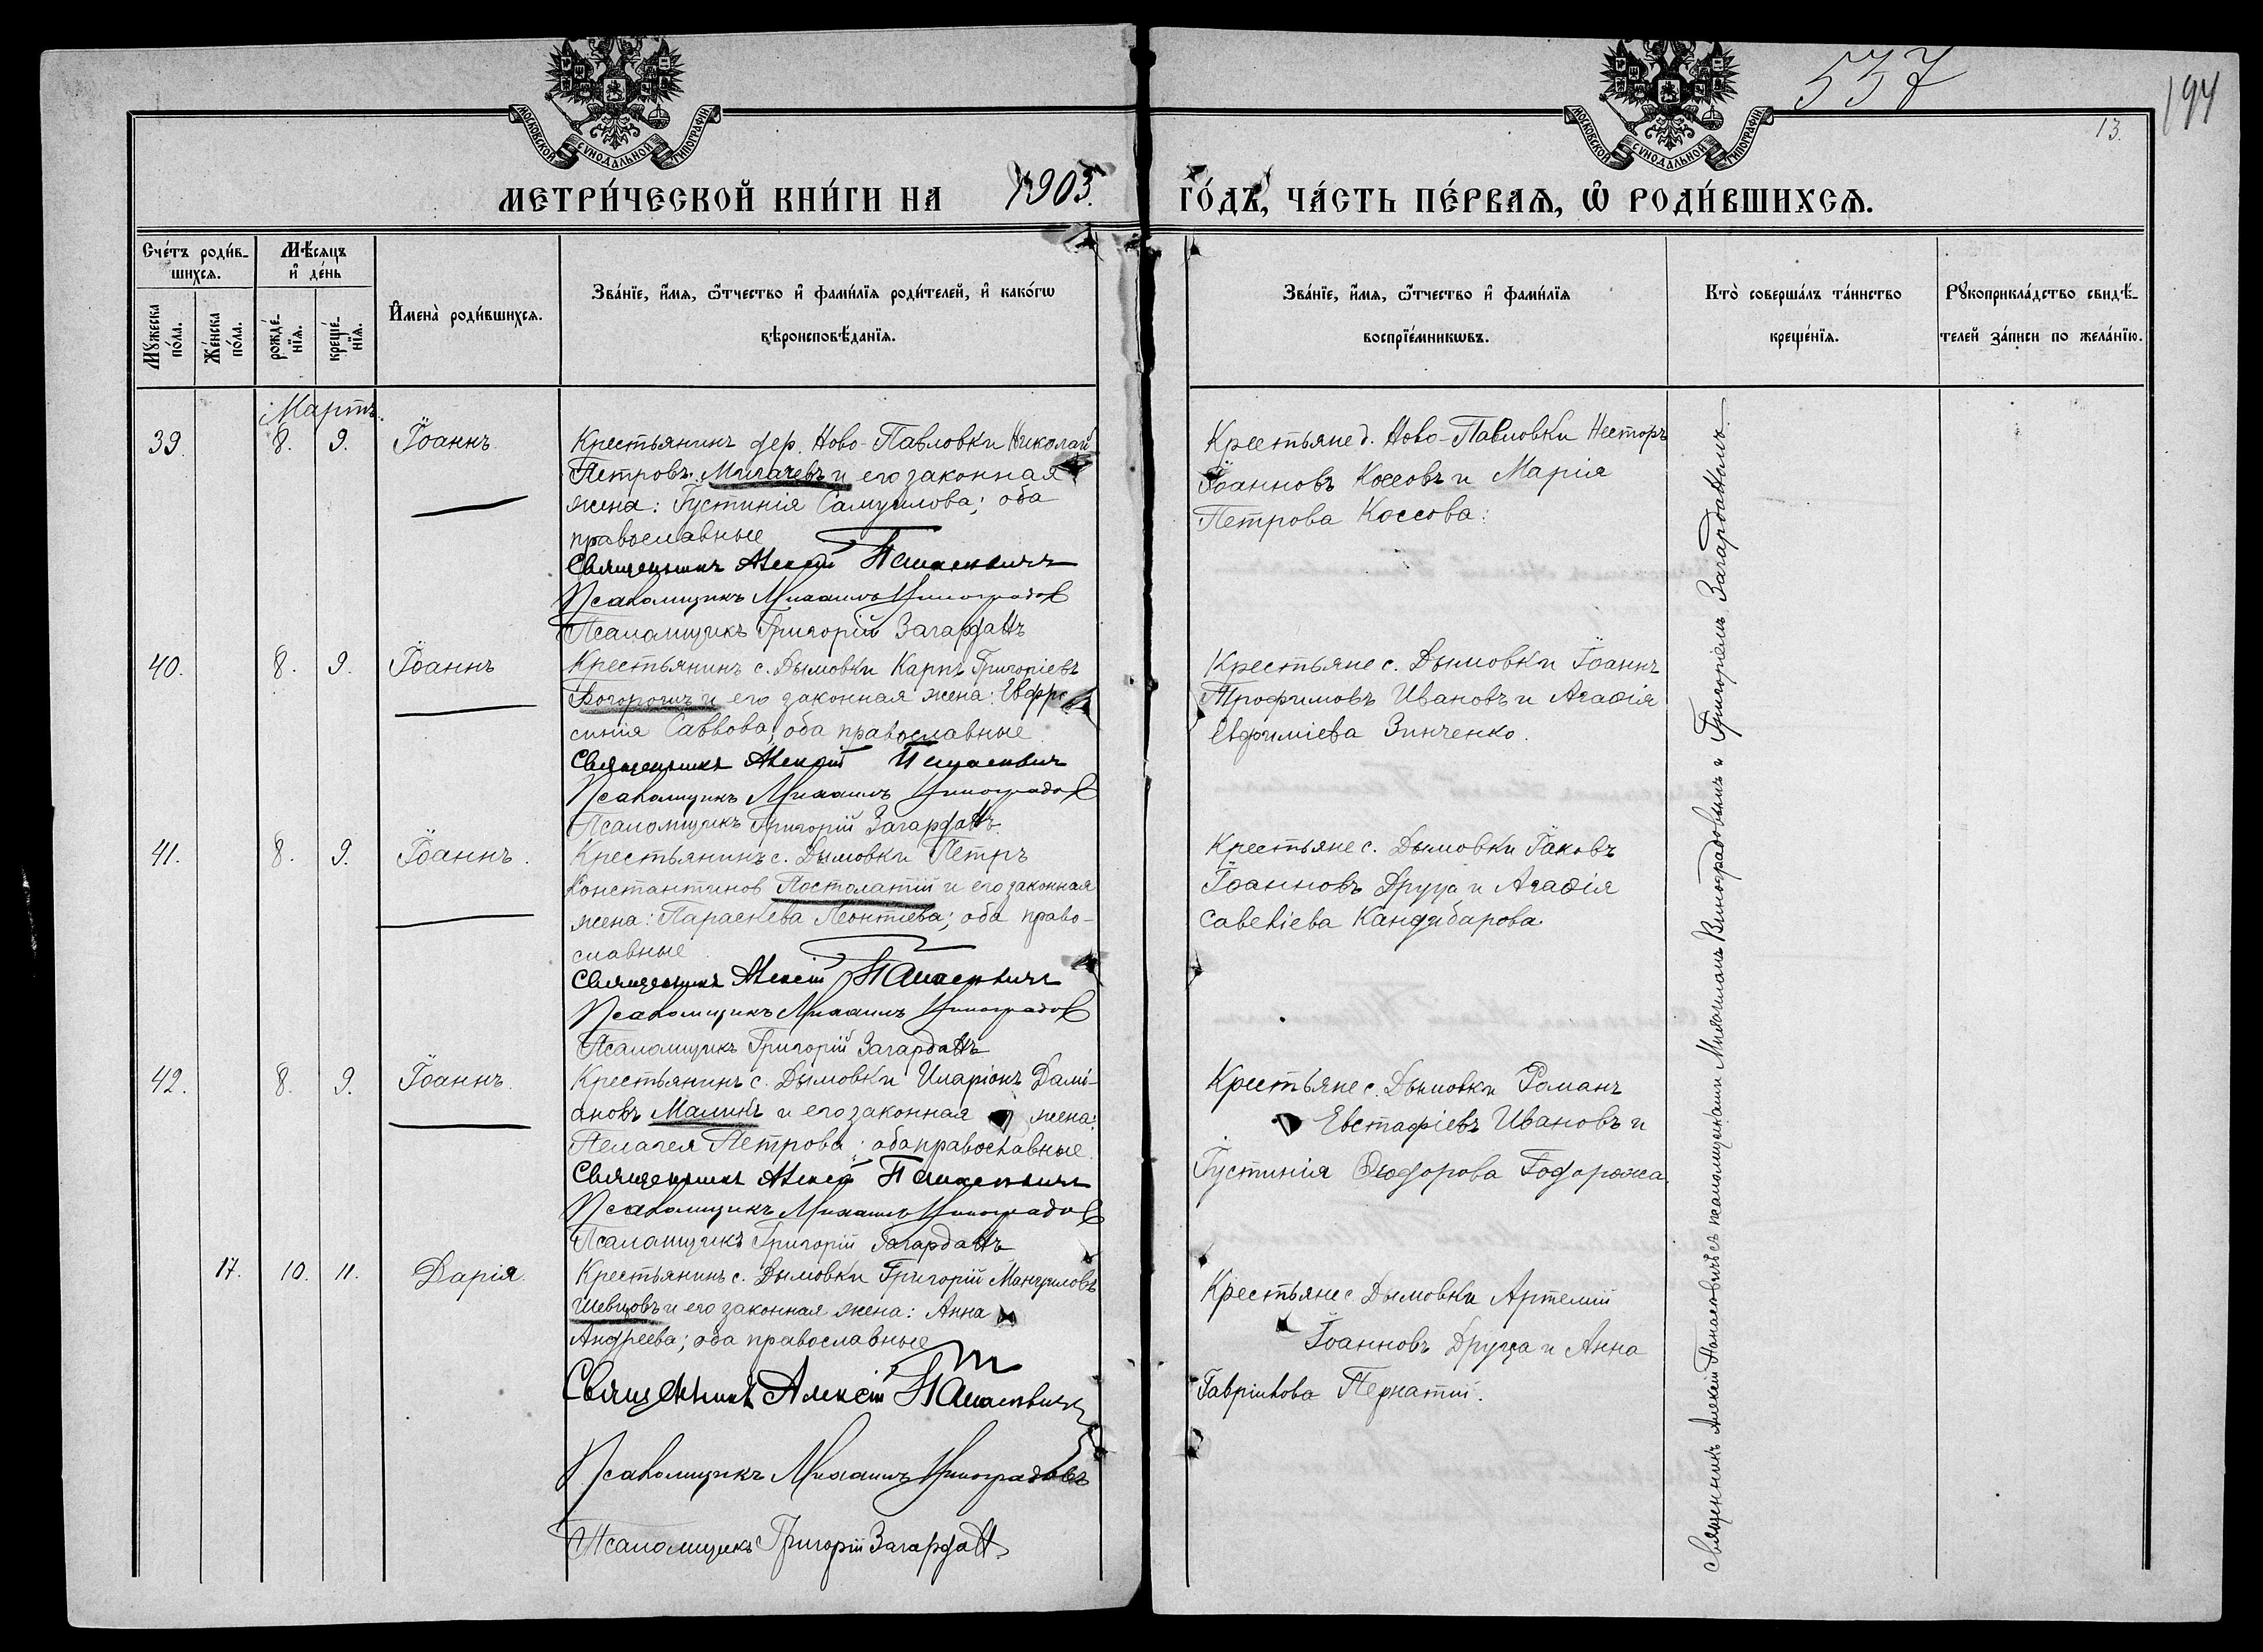 557
194
13.
МОСКОВСКОЙ СѴНОДАЛЬНОЙ ТИПОГРАФІИ
МОСКОВСКОЙ СѴНОДАЛЬНОЙ ТИПОГРАФІИ
МЕТРИ́ЧЕСКОЙ КНИ́ГИ НА 1903.
ГО́ДЪ, ЧА́СТЬ ПЕ́РВАѦ, Ѽ РОДИ́ВШИХСѦ.
Сче́тъ роди́в-
шихсѧ.
Мꙋ́жеска
по́ла.
Же́нска
по́ла.
Мѣ́сѧцъ
и҆ де́нь
рожде́-
нїѧ.
креще́-
нїѧ.
И҆мена̀ роди́вшихсѧ.
Зва́нїе, и҆́мѧ, ѻ҆́тчество и҆ фами́лїѧ роди́телей, и҆ како́гѡ
вѣроисповѣ́данїѧ.
Зва́нїе, и҆́мѧ, ѻ҆́тчество и҆ фами́лїѧ
воспрїе́мникѡвъ.
Кто̀ соверша́лъ та́инство
креще́нїѧ.
Рꙋкоприкла́дство свидѣ́-
телей за́писи по жела́нїю.
Мартъ.
39. 8. 9. Іоаннъ.
Крестьянинъ дер. Ново-Павловки Николай
Петровъ Мигачевъ и его законная
жена: Іустинія Самуилова; оба
православные
Священникъ Алексій Панасевичъ
Псаломщикъ Михаилъ Виноградов
Псаломщикъ Григорій Загардан
Крестьяне д. Ново-Павловки Несторъ
Іоанновъ Коссовъ и Марія
Петрова Коссова.
40. 8. 9. Іоаннъ
Крестьянинъ с. Дымовки Карпъ Григоріевъ
и его законная жена: Евфро
синія Саввова; оба православные
Священникъ Алексій Панасевич
Псаломщикъ Михаилъ Виноградов
Псаломщикъ Григорій Загардан
Крестьяне с. Дымовки Іоаннъ
Трофимовъ Ивановъ и Агаѳія
Евфиміева Зинченко.
41. 8. 9. Іоаннъ.
Крестьянинъ с. Дымовки Петръ
Константинов Постолатій и его законная
жена: Параскева Леонтіева; оба право-
славные
Священникъ Алексій Панасевичъ
Псаломщикъ Михаилъ Виноградов
Псаломщикъ Григорій Загардан
Крестьяне с. Дымовки Іаковъ
Іоанновъ Друца и Агаѳія
Савеліева Кандыбарова
42. 8. 9. Іоаннъ.
Крестьянинъ с. Дымовки Иларіонъ Дамі-
ановъ Малинъ и его законная жена:
Пелагея Петрова; оба православные.
Священникъ Алексій Панасевичъ
Псаломщикъ Михаилъ Виноградов
Псаломщикъ Григорій Загардан
Крестьяне с. Дымовки Романъ
Евстафіевъ Ивановъ и
Іустинія Ѳеодорова Тодорожа
17. 10. 11. Дарія.
Крестьянинъ с. Дымовки Григорій Мануиловъ
Шевцовъ и его законная жена: Анна
Андреева; оба православные
Священникъ Алексій Панасевичъ
Псаломщикъ Михаилъ Виноградовъ
Псаломщикъ Григорій Загардан
Крестьяне с Дымовки Артемій
Іоанновъ Друца и Анна
Гавріилова Пернатій.
Священникъ Алексій Панасевичъ съ псаломщиками Михаиломъ Виноградовымъ и Григоріемъ Загарданомъ.